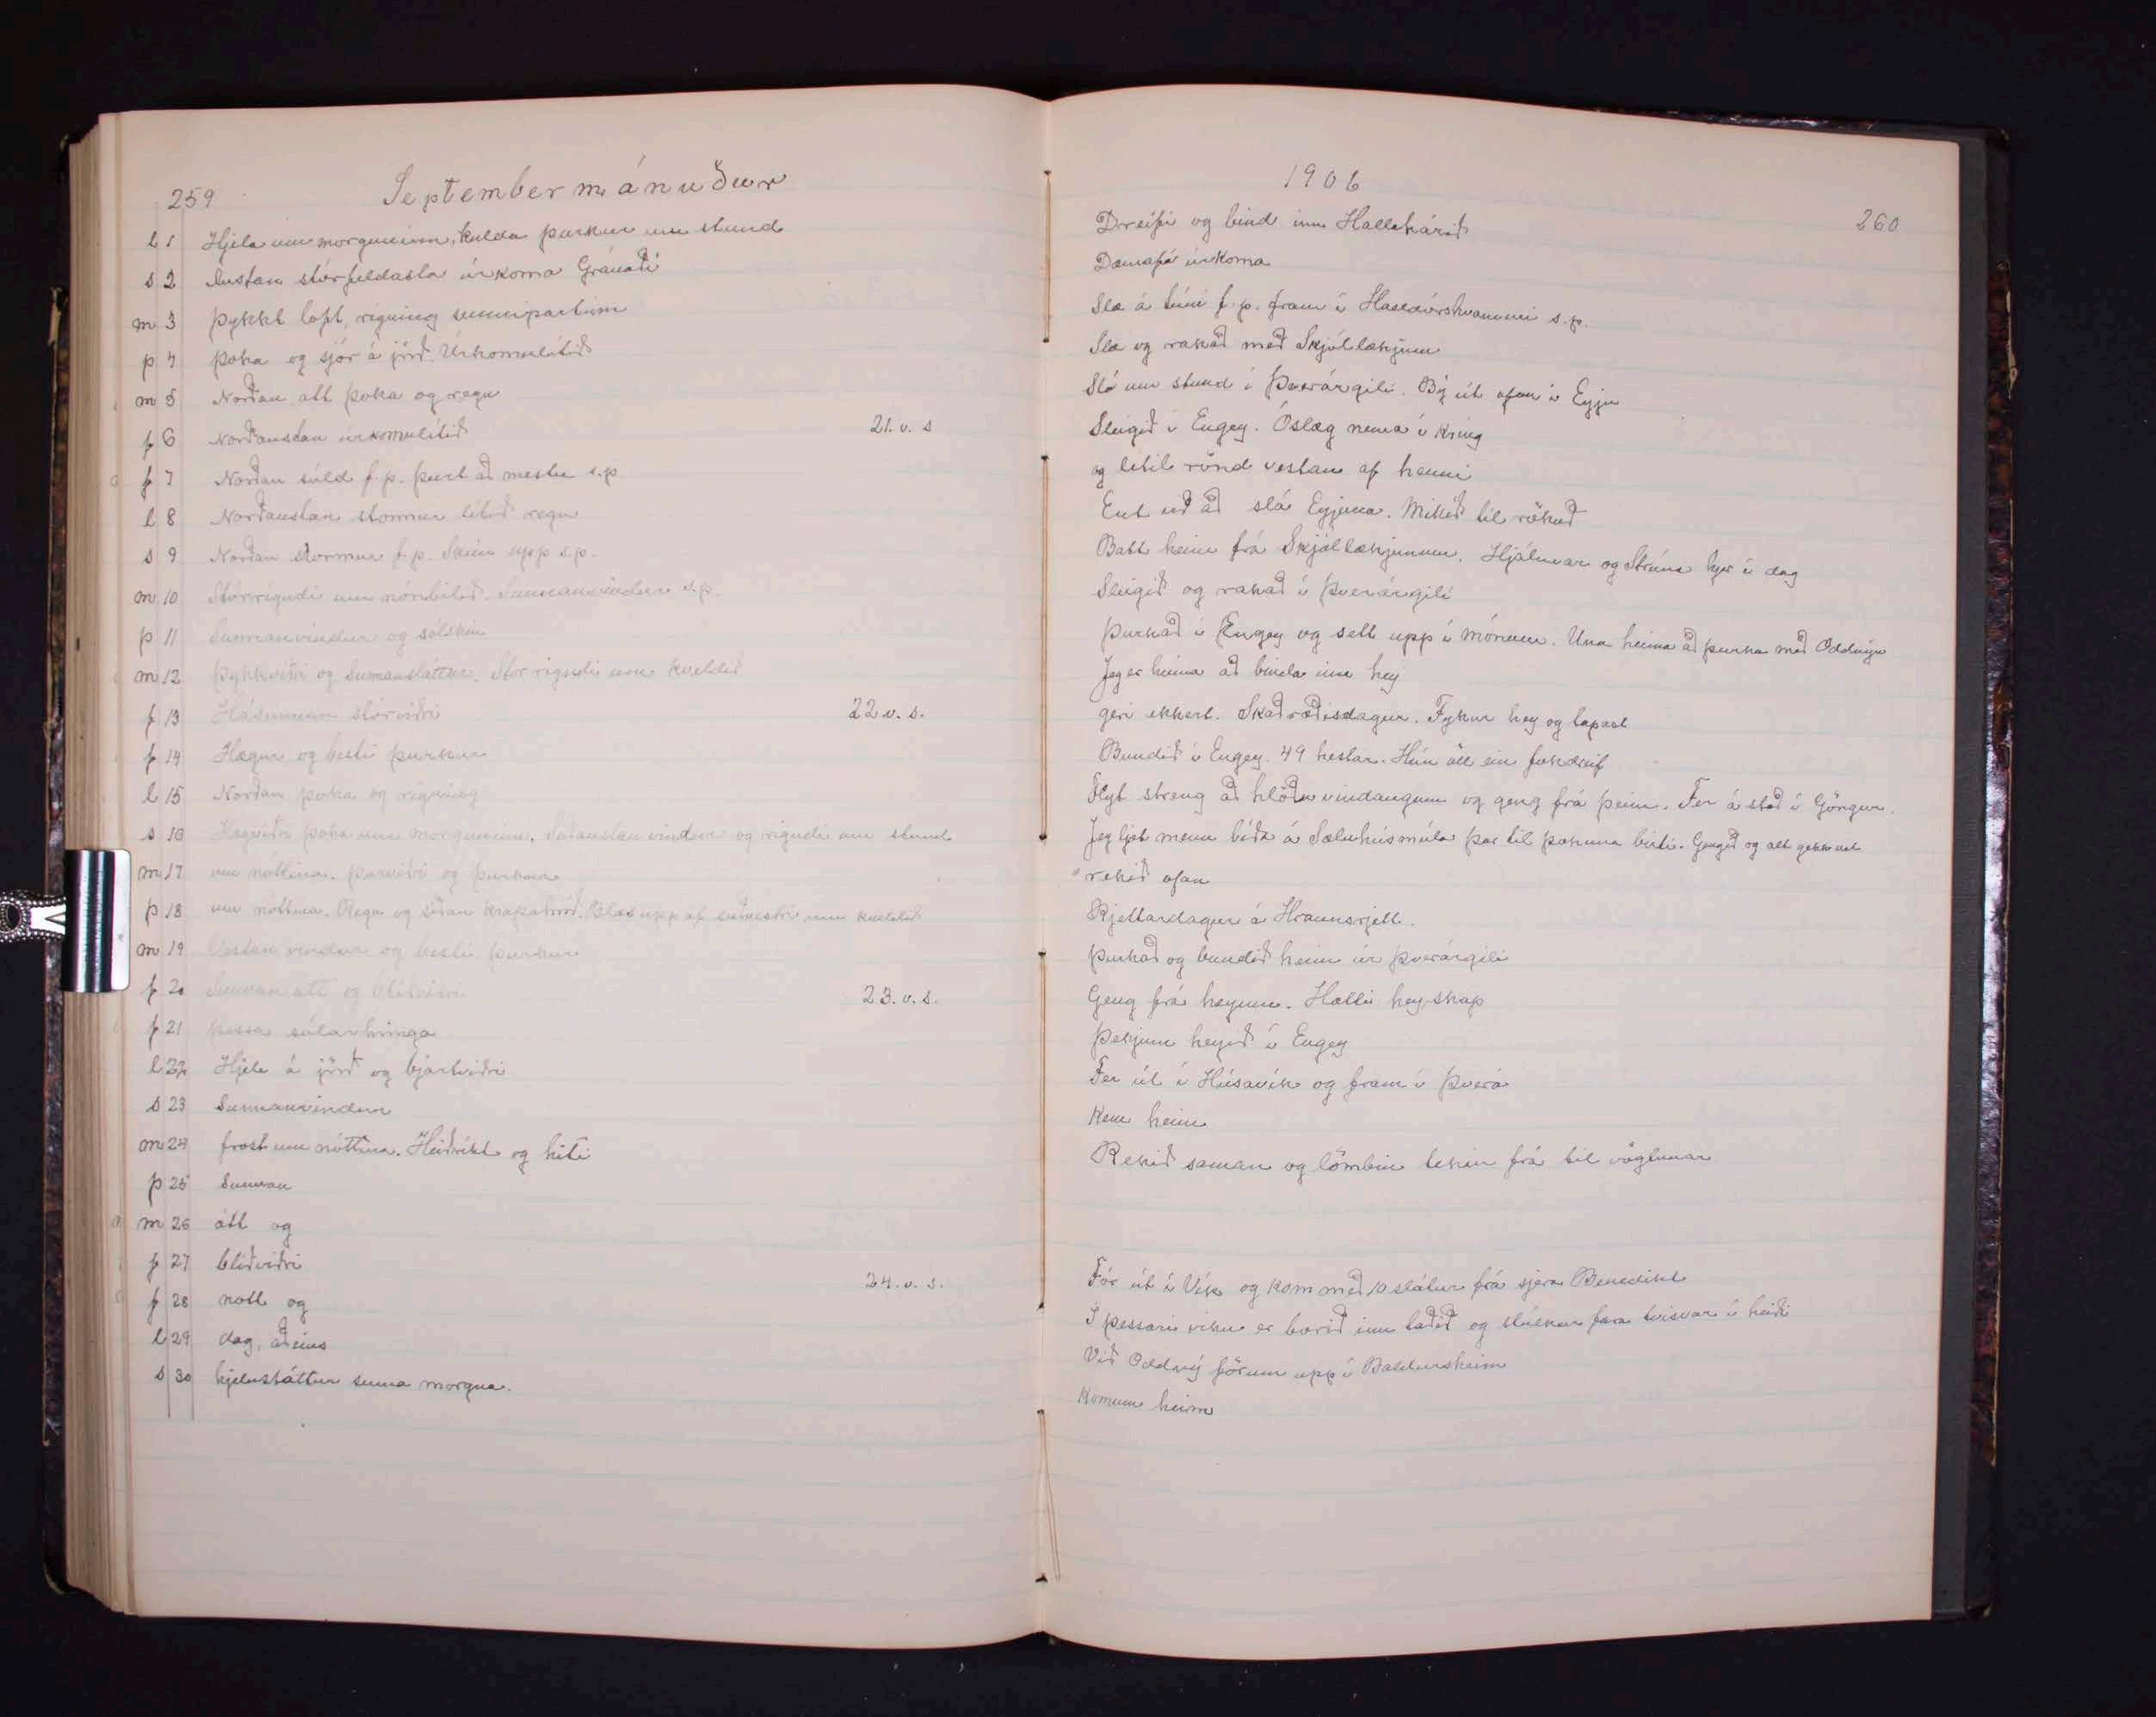 259
September mánuður
l 1 Hjela um morguninn, kulda þurkur um stund
s 2 Austan stórfeldasta úrkoma Gránaði
m 3 Þykkt loft, rigning seinnipartinn
þ 4 Þoka og sjór á jörð. Úrkomulítið
m 5 Norðan átt þoka og regn
f 6 Norðaustan úrkomulítið 21. v. s
f 7 Norðan súld f. p. þurt að mestu s. p
l 8 Norðaustan stormur lítið regn
s 9 Norðan stormur f. p. Skein upp s. p.
m 10 Stórrigndi um nónbilið. Sunnanvindur s. p.
þ 11 Sunnanvindur og sólskin
m 12 Þykkviðri og Sunnansláttur. Stór rigndi um kveldið
f 13 Hásunnan stórviðri 22 v. s.
f 14 Hægur og besti þurkur
l 15 Norðan þoka og rigning
s 16 þoka um morguninn. Suðaustan vindur og rigndi um stund
m 17 um nóttina. Þurviðri og þurkur
þ 18 um nóttina. Regn og síðan krapahríð. Blæs upp af suðvestri um kveldið
m 19 Vestan vindur og besti þurkur
f 20 Sunnan átt og blíðviðri 23. v. s.
f 21 þessa sólarhringa
l 22 Hjela á jörð og bjartviðri
s 23 Sunnanvindur
m 24 frost um nóttina. Heiðríkt og hiti
þ 25 Sunnan
m 26 átt og
f 27 blíðviðri 24. v. s.
f 28 nótt og
l 29 dag, aðeins
s 30 hjelusláttur suma morgna.
1906
260
Dreifi og bind inn Hallahárið
Dæmafá úrkoma
Slæ á túni f. p. fram í Halldórshvammi s. p.
Slæ og rakað með Skjóllækjum
Slæ um stund í Þverárgili. Bý út ofan í Eyju
Slegið í Engey. Óslæg nema í kring
og lítil rönd vestan af henni
Ent við að slá Eyjuna. Mikið til rökuð
Batt heim frá Skjóllækjunum. Hjálmar og Strúna hjer í dag
Slegið og rakað í Þverárgili
Þurkað í Engey og sett upp í mónum. Una heima að þurka með Oddnýu
Jeg er heima að binda inn hey
geri ekkert. Skaðræðisdagur. Fykur hey og tapast
Bundið í Engey. 49 hestar. Hún öll ein fokdreif
Flyt streng að hlöðu vindaugum og geng frá þeim. Fer á stað í Göngur.
Jeg ljet menn bíða á Sæluhúsmúla þar til þokuna birti. Gengið og alt gekk vel
rekið ofan
Rjettardagur á Hraunsrjett.
Þurkað og bundið heim úr Þverárgili
Geng frá heyum. Hætti heyskap
Þekjum heyið í Engey
Fer út í Húsavík og fram í Þverá
Kem heim
Rekið saman og lömbin tekin frá til vöglunar
Fór út í Vík og kom með 10 slátur frá sjera Benedikt
Í þessari viku er borið inn taðið og stúlkur fara tvisvar í heiði
Við Oddný förum upp í Baldursheim
Komum heim